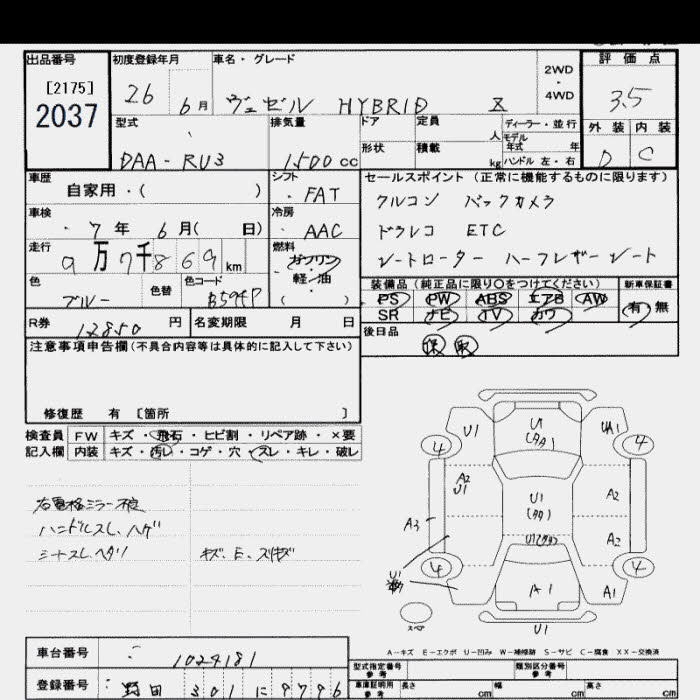 出品番号
[2175]
2037
初度登録年月
26 6月
車名・グレード
ヴェゼル HYBRID Z
2WD
・
4WD
評価点
3.5
外装 内装
D C
型式
DAA-RU3
排気量
1500 cc
ドア 定員 人
形状 積載 kg
ディーラー・並行
モデル年式 年
ハンドル 左・右
車歴
自家用・( )
シフト
FAT
車検
7年 6月( 日)
冷房
AAC
走行
9万7千869 km
燃料
ガソリン
軽・油
( )
色 ブルー 色替 色コード B594P
R券 12850円 名変期限 月 日
セールスポイント (正常に機能するものに限ります)
クルコン バックカメラ
ドラレコ ETC
シートヒーター ハーフレザーシート
装備品 (純正品に限り○をつけてください) 新車保証書
PS PW ABS エアB AW
SR ナビ TV カワ 有 無
後日品
保 取
注意事項申告欄(不具合内容等は具体的に記入して下さい)
修復歴 有 〔箇所 〕
検査員 FW キズ・飛石・ヒビ割・リペア跡・×要
記入欄 内装 キズ・汚レ・コゲ・穴・スレ・キレ・破レ
右電格ミラー不良
ハンドルスレ、ハゲ
シートスレ、ヘタリ キズ、E、スリキズ
U1 U1 UA1
(タワ1)
4 4
A2
U1 A2
U1
(タワ)
A3 U1(タワ) A2
U1
4 4
A1 A1
スペア
U1
A-キズ E-エクボ U-凹み W-補修跡 S-サビ C-腐食 XX-交換済
車台番号 1024181
登録番号 野田 301 に 9796
型式指定番号 参考 類別区分番号 参考
車庫証明用 参考 長さ cm 幅 cm 高さ cm